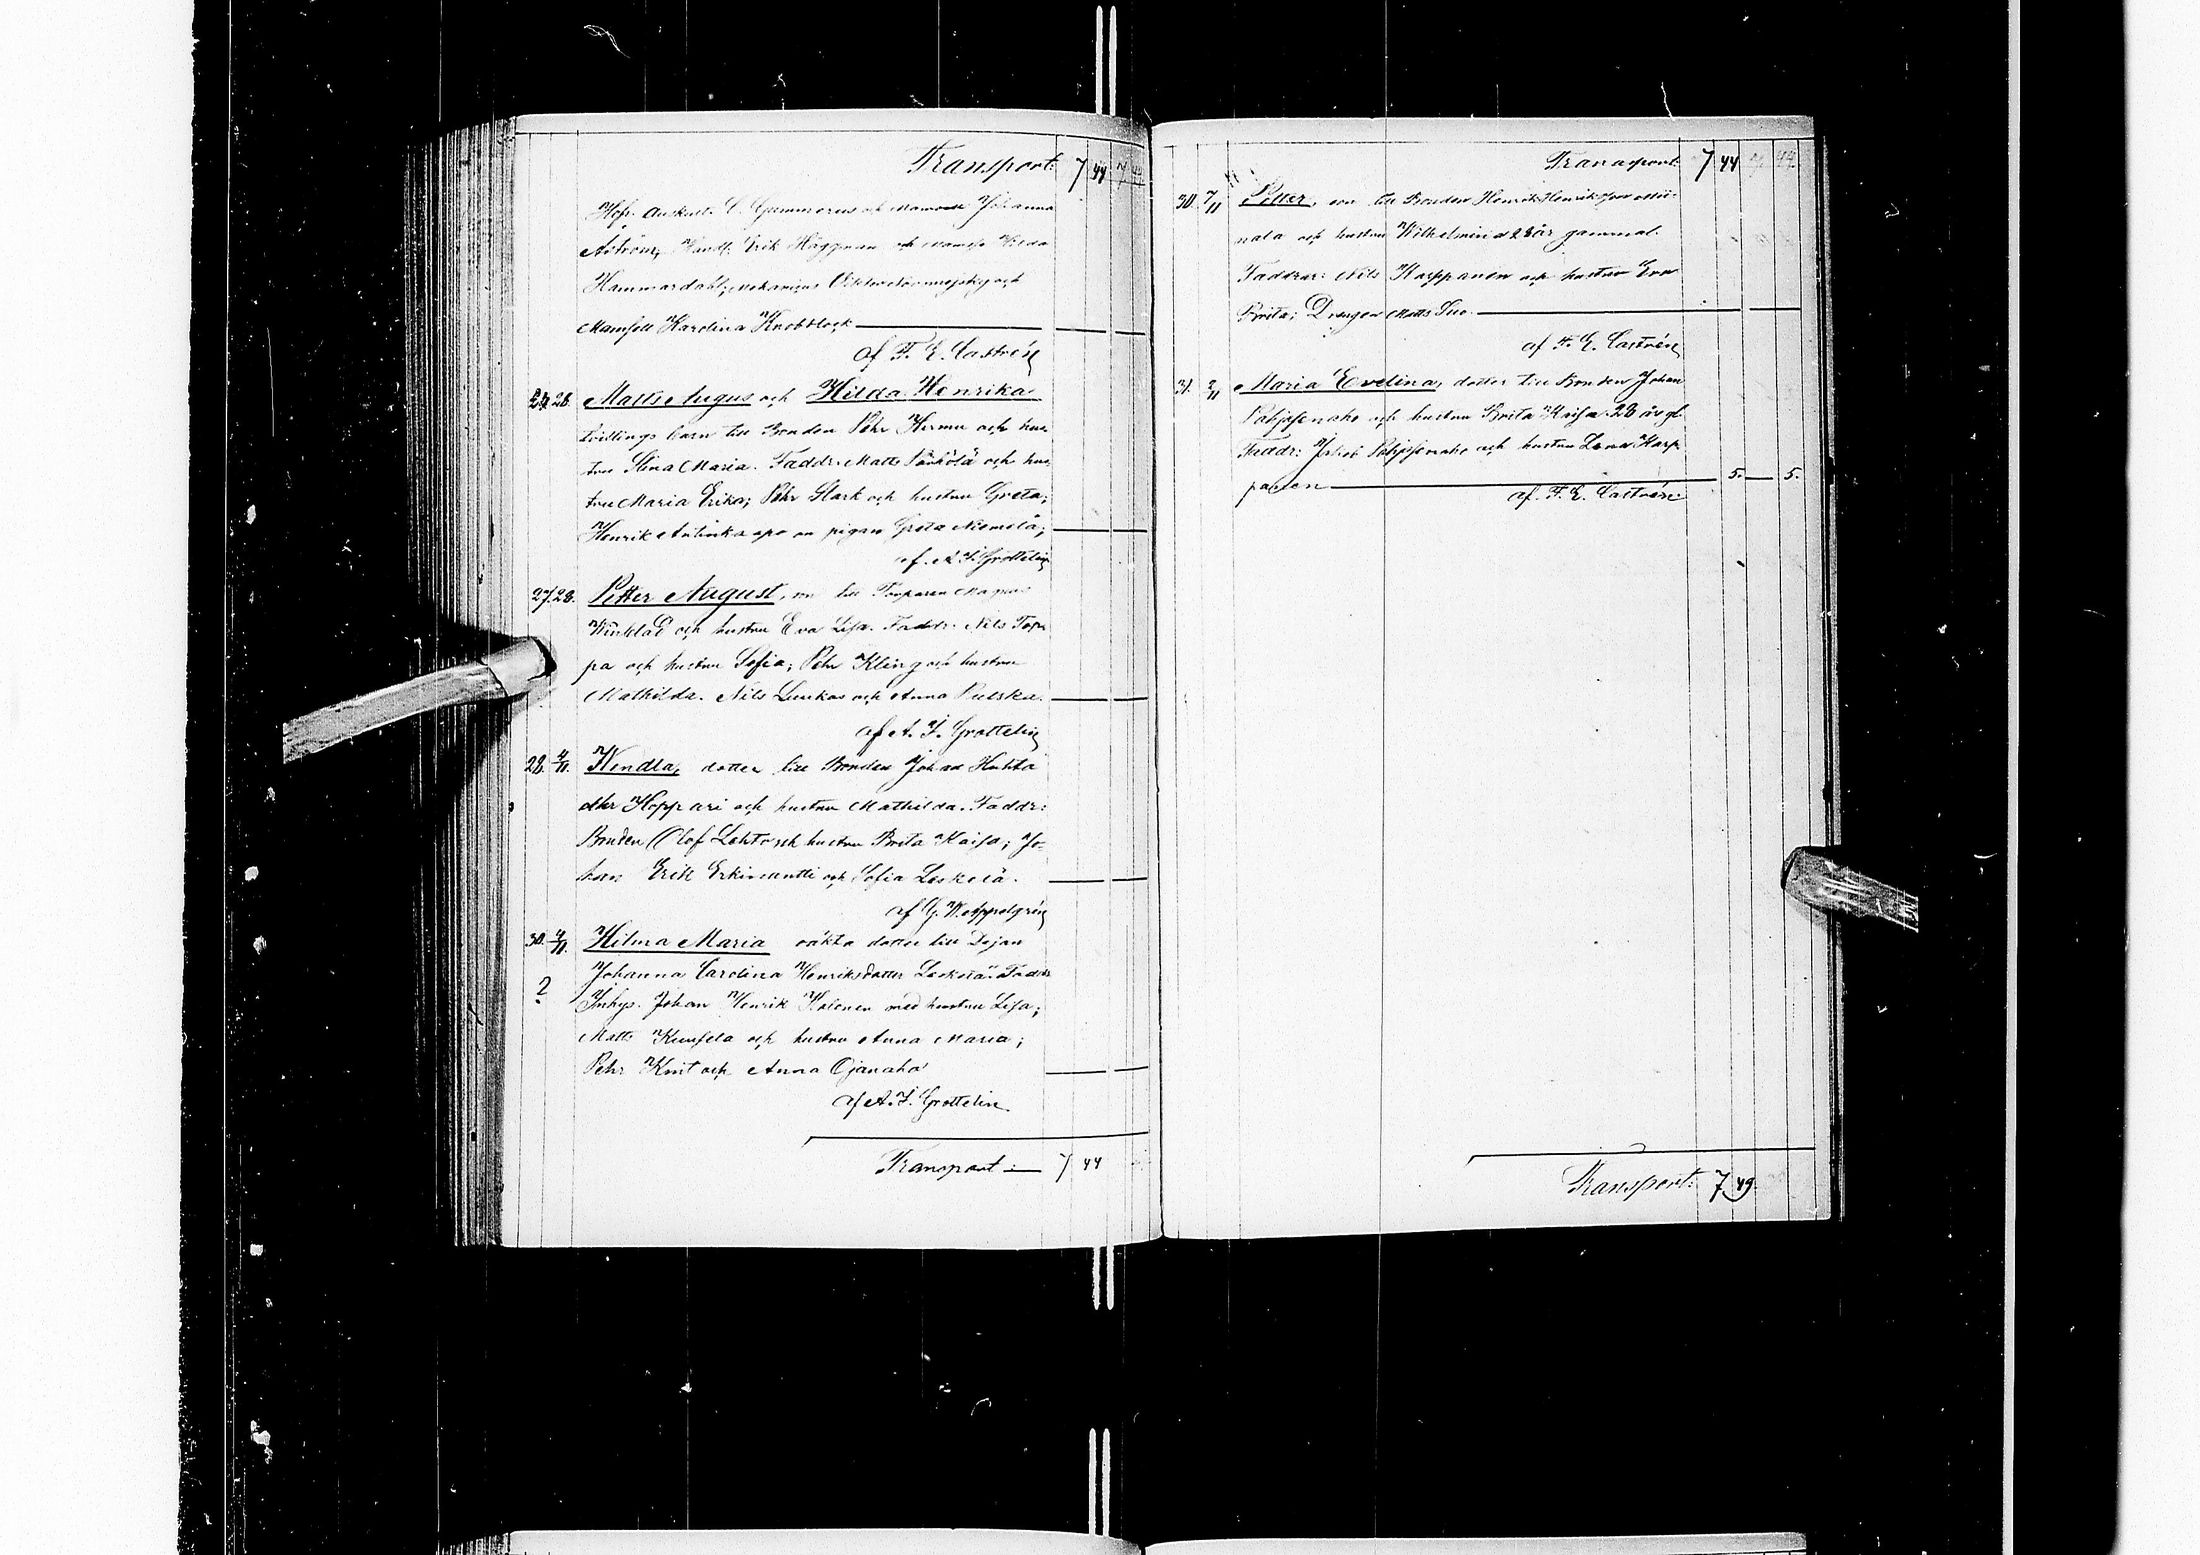 Transport: 7 44 7
Hofr. Auskult. C. Gummerus och Mamsell Johanna
Åström, Handl. Erik Häggman och Mamsell Hilda
Hammardahl; Mekanicus och
Mamsell Karolina Knobblock
af F. E. Castrén
28. Matts Augus och Hilda Henrika
tvillings barn till Bonden Pehr Hirmu och hus-
tru Stina Maria. Faddr: Matts och hus-
tru Maria Erika; Pehr Stark och hustru Greta;
Henrik Anlinka och pigan Greta Niemelä;
af A. I. Grottelin
27. 28. Petter August, son till Torparen Magnus
Winklad och hustru Eva Lisa. Faddr: Nils Top-
pa och hustru Sofia; Pehr Kling och hustru
Mathilda. Nils Luukas och Anna Pulska.
af A. I. Grottelin
28. 4/11. Wendla, dotter till Bonden Johan Huhta
eller Hoppari och hustru Mathilda. Faddr:
Bonden Olof Lehto och hustru Brita Kaisa; Jo-
han Erik Erkinantti och Sofia Leskelä.
af G. W. Appelgrén
30. 4/11. Hilma Maria oäkta dotter till Dejan
Johanna Carolina Henriksdotter Leskelä. Faddr:
? Inhys. Johan Henrik Halonen med hustru Lisa;
Matts och hustru Anna Maria;
Pehr Knit och Anna Ojanaho
af A. I. Grottelin.
Transport: 7 44
Transport: 7 44 7 44
30. 7/11 Petter, son till Bonden Henrik Henriksson Mii-
nala och hustru Wilhelmina 28 år gammal.
Faddrar: Nils Karppanen och hustru Eva
Brita; Drengen Matts Suo.
af F. E. Castrén
31. 2/11 Maria Evelina, dotter till Bonden Johan
och hustru Brita Kajsa 28 år gl.
Faddr: Jakob och hustru Lena Karp-
panen 5. 5.
af F. E. Castrén.
Transport: 7 49.